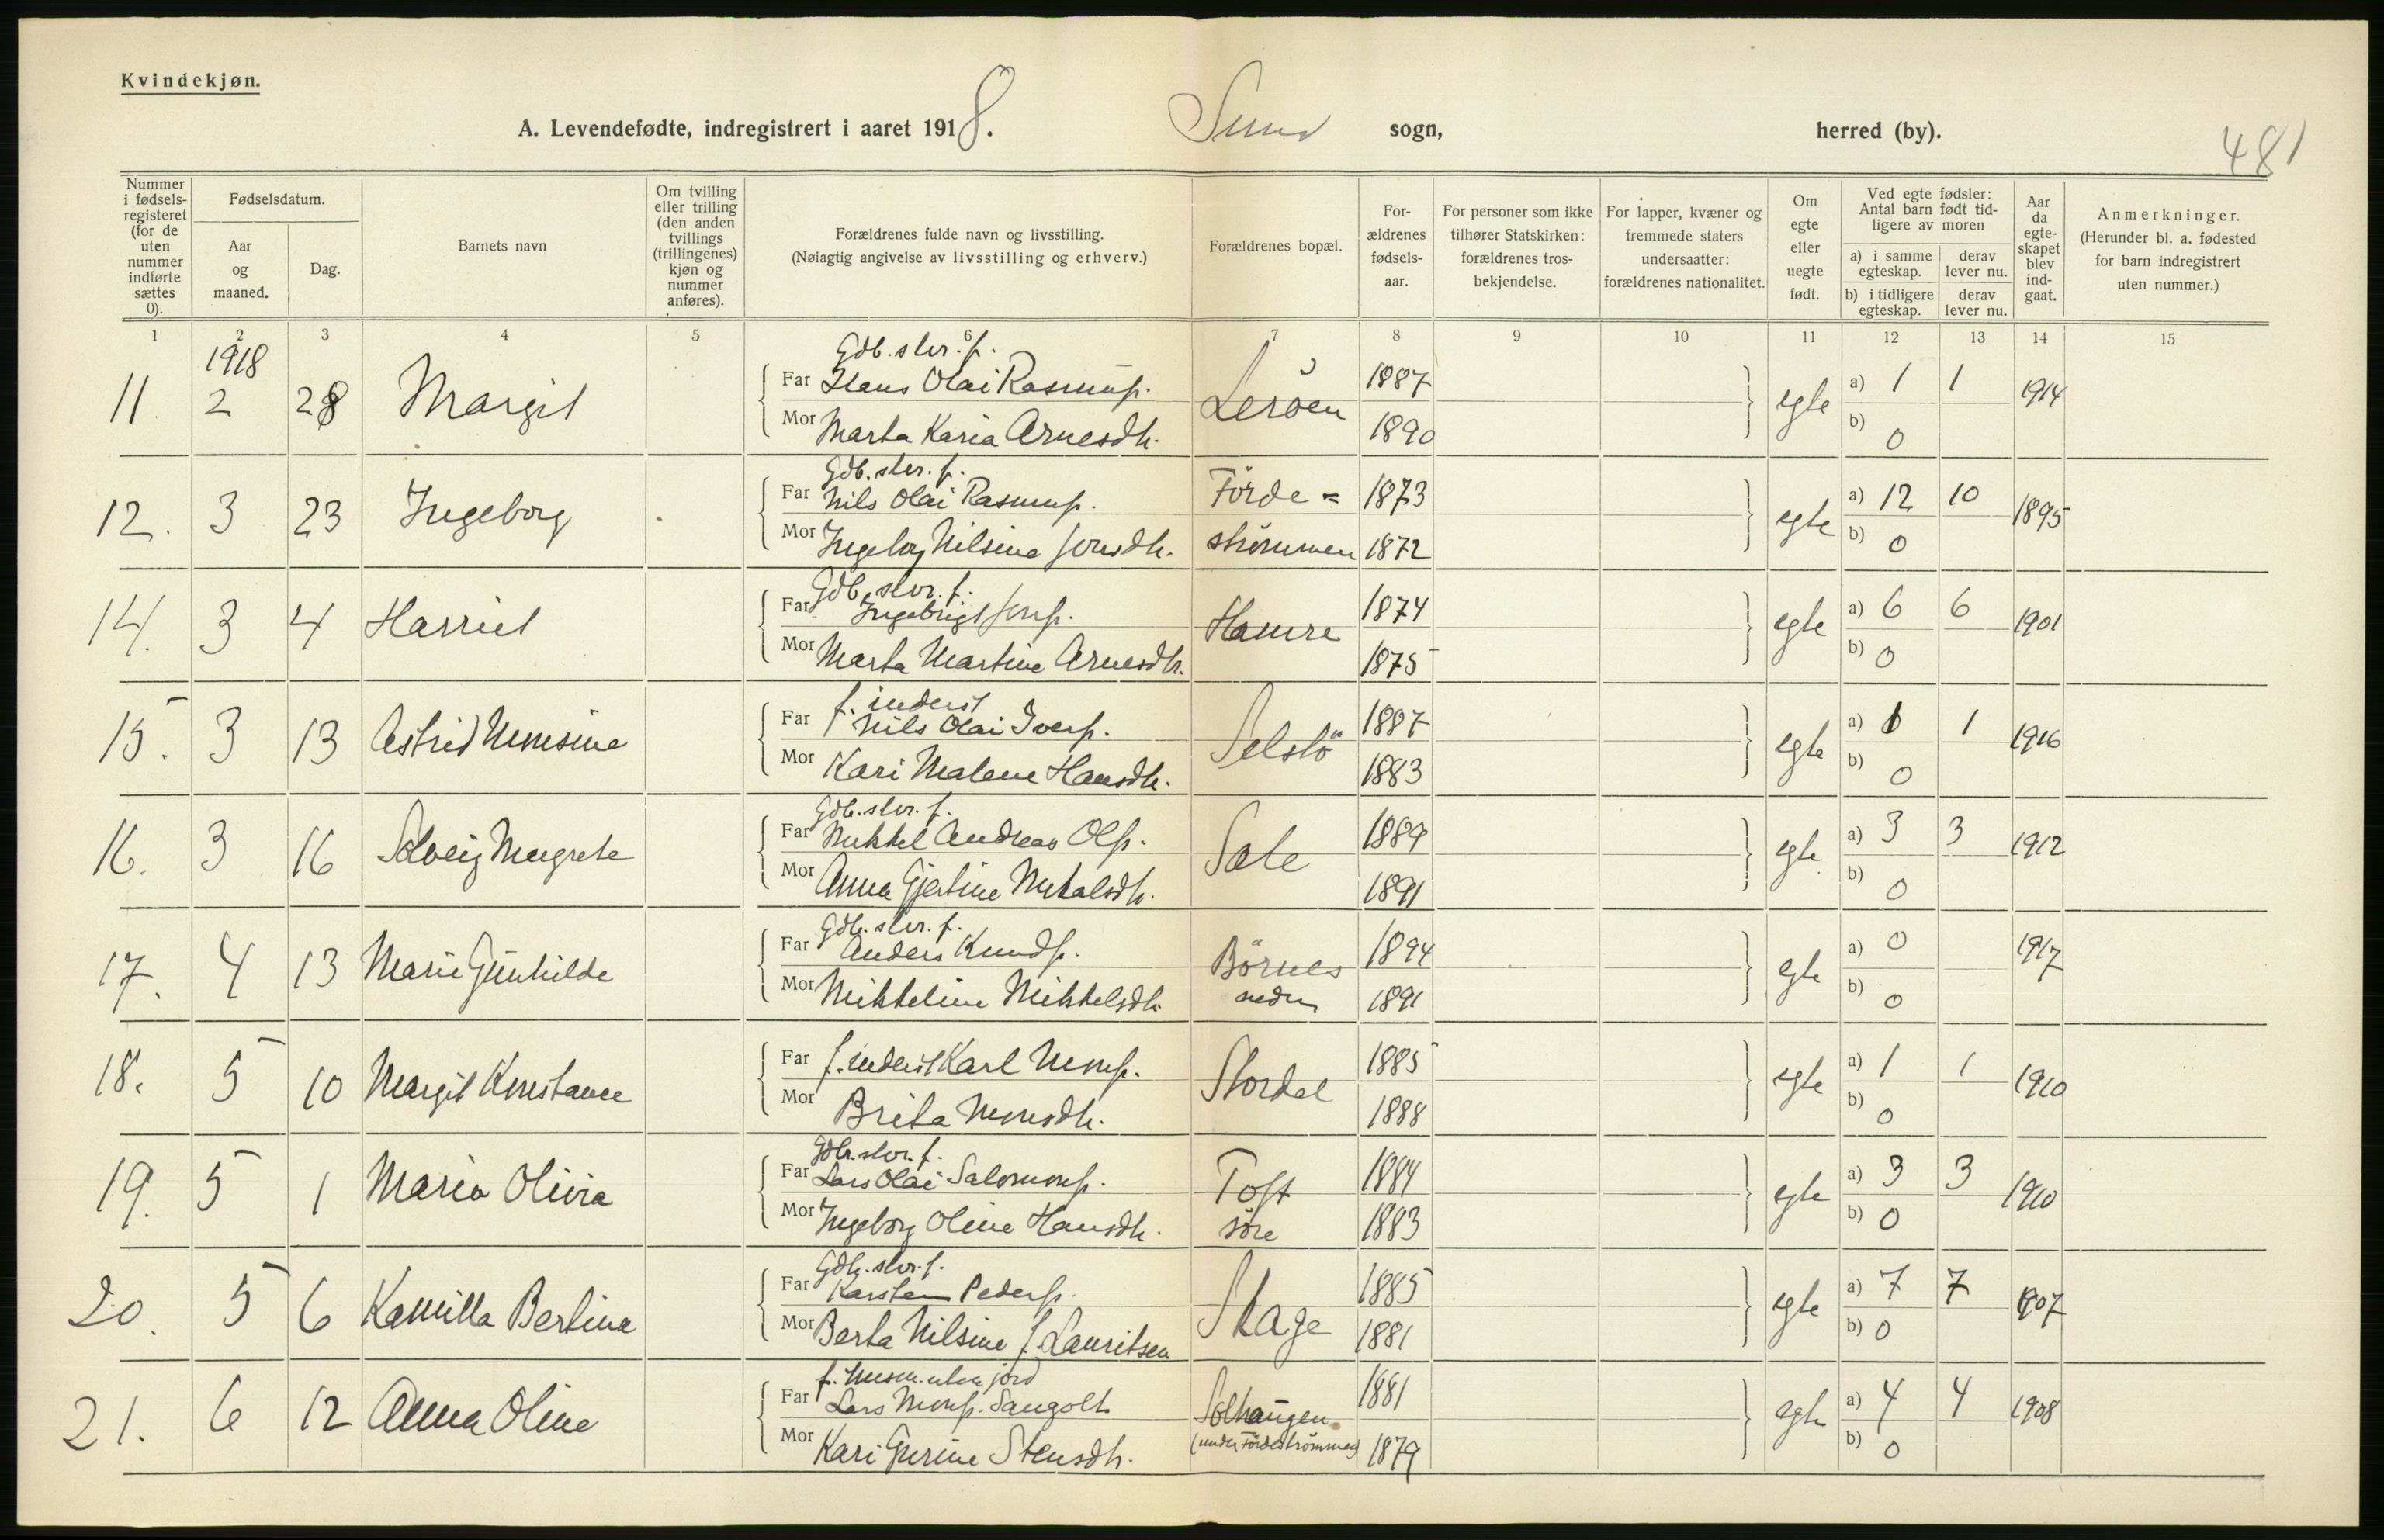 Kvindekjøn.
A. Levendefødte, indregistrert i aaret 1918. Sund sogn, herred (by).
481
Nummer i fødselsregisteret (for de uten nummer indførte sættes 0).
Fødselsdatum.
Aar og maaned.
Dag.
Barnets navn
Om tvilling eller trilling (den anden tvillings (trillingenes) kjøn og nummer anføres).
Forældrenes fulde navn og livsstilling.
(Nøiagtig angivelse av livsstilling og erhverv.)
Forældrenes bopæl.
Forældrenes fødselsaar.
For personer som ikke tilhører Statskirken: forældrenes trosbekjendelse.
For lapper, kvæner og fremmede staters undersaatter: forældrenes nationalitet.
Om egte eller uegte født.
Ved egte fødsler: Antal barn født tidligere av moren
a) i samme egteskap. derav lever nu.
b) i tidligere egteskap. derav lever nu.
Aar da egteskapet blev indgaat.
Anmerkninger.
(Herunder bl. a. fødested for barn indregistrert uten nummer.)
1 2 3 4 5 6 7 8 9 10 11 12 13 14 15
1918
Gdb. slvr. f.
11. 2 28 Margit Far Hans Olai Rasmuss. Leröen 1887 egte a) 1 1 1914
Mor Marta Karia Arnesdtr. 1890 b) 0
Gdb. slvr. f.
12. 3 23 Ingeborg Far Nils Olai Rasmuss. Förde= 1873 egte a) 12 10 1895
Mor Ingeborg Nilsine Jonsdtr. strömmen 1872 b) 0
Gdb. slvr. f.
14. 3 4 Harriet Far Ingebrigt Jons. Hamre 1874 egte a) 6 6 1901
Mor Marta Martine Arnesdtr. 1875 b) 0
f. inderst
15. 3 13 Astrid Monsine Far Nils Olai Ivers. Selstö 1887 egte a) 1 1 1916
Mor Kari Malene Hansdtr. 1883 b) 0
Gdb. slvr. f.
16. 3 16 Solveig Margrete Far Mikkel Andreas Ols. Sæle 1889 egte a) 3 3 1912
Mor Anna Gjertine Mikalsdtr. 1891 b) 0
Gdb. slvr. f.
17. 4 13 Marie Gunhilde Far Anders Knuds. Börnes 1894 egte a) 0 1917
Mor Mikkeline Mikkelsdtr. nedre 1891 b) 0
18. 5 10 Margit Konstance Far f. inderst Karl Mons. Stordal 1885 egte a) 1 1 1910
Mor Brita Monsdtr. 1888 b) 0
Gdb. slvr. f.
19. 5 1 Maria Olivia Far Lars Olai Salomons. Toft 1884 egte a) 3 3 1910
Mor Ingeborg Oline Hansdtr. söre 1883 b) 0
Gdb. slvr. f.
20. 5 6 Kamilla Bertina Far Karsten Peders. Skage 1885 egte a) 7 7 1907
Mor Berta Nilsine f. Lauritsen 1881 b) 0
f. husm. uten jord
21. 6 12 Anna Oline Far Lars Mons. Sangolt Solhaugen 1881 egte a) 4 4 1908
Mor Kari Gurine Stensdtr. (under Fördeströmmen) 1879 b) 0